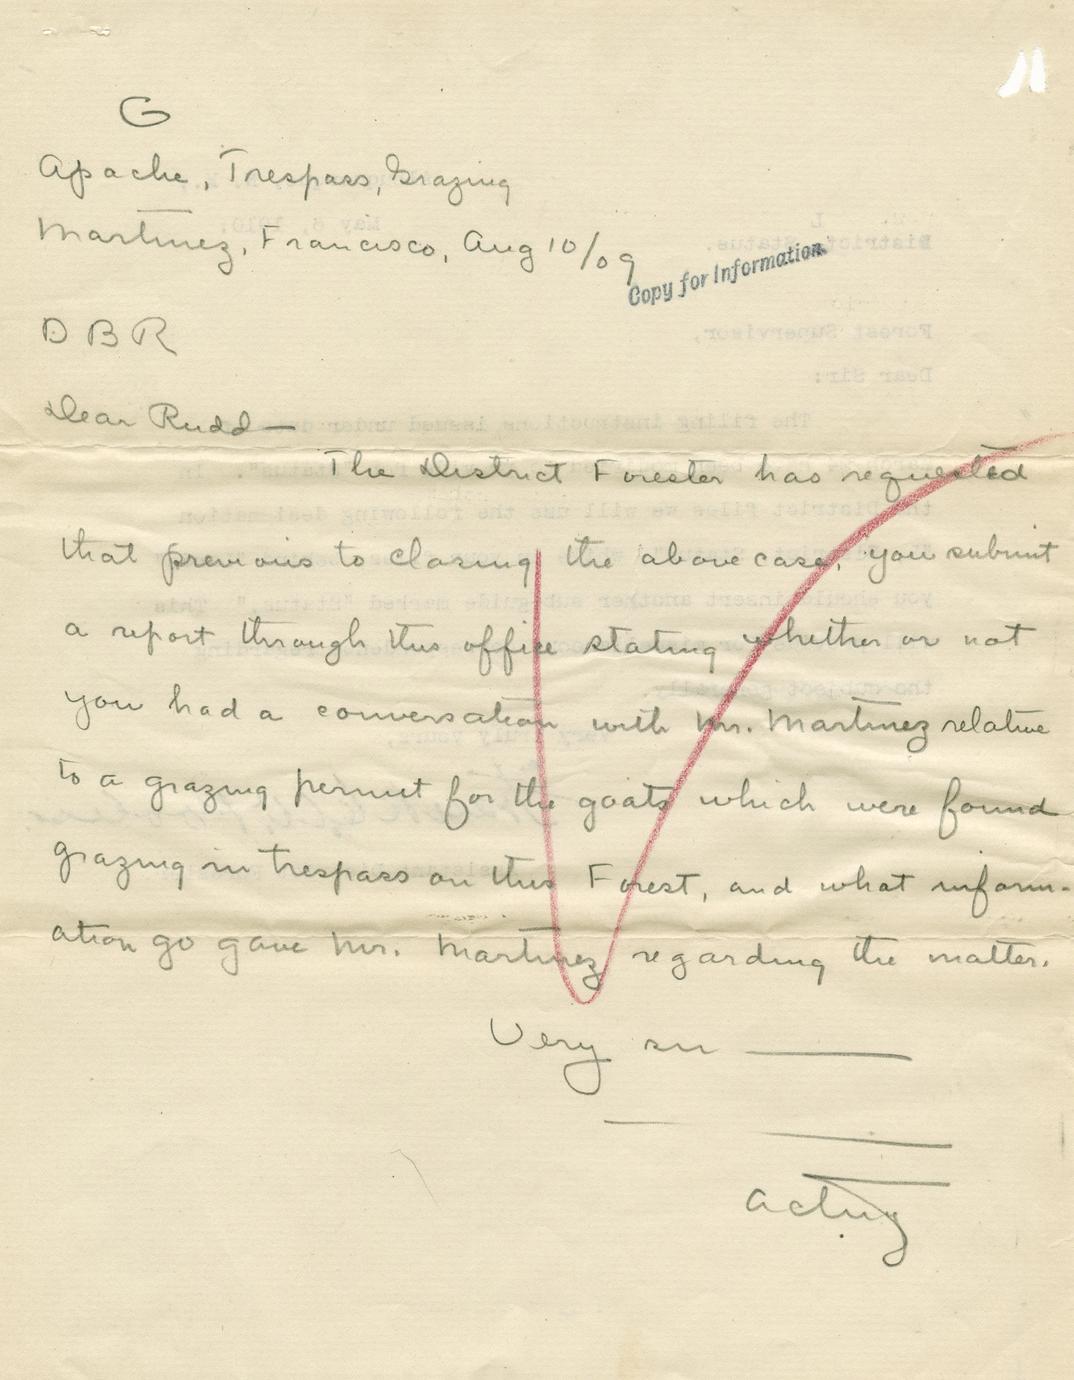 G
Apache, Trespass, Grazing
Martinez, Francisco, Aug 10/09
Copy for Information.
D B R
Dear Rudd—
The District Forester has requested
that previous to closing the above case, you submit
a report through this office stating whether or not
you had a conversation with Mr. Martinez relative
to a grazing permit for the goats which were found
grazing in trespass on this Forest, and what inform-
ation go gave Mr. Martinez regarding the matter.
Very
Acting